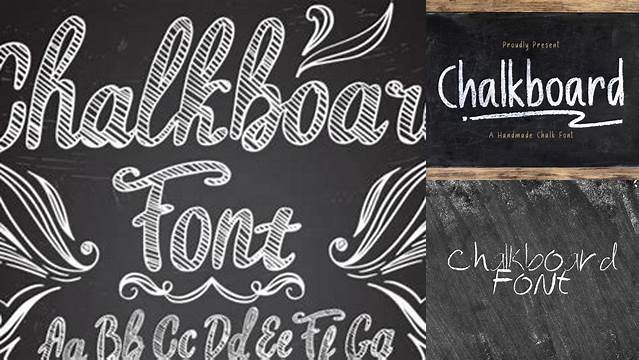 Chalkboar
Font
Aa Bb Cc Dd Ee Ff Gg
Proudly Present
Chalkboard
A Handmade Chalk Font
Chalkboard
FONT